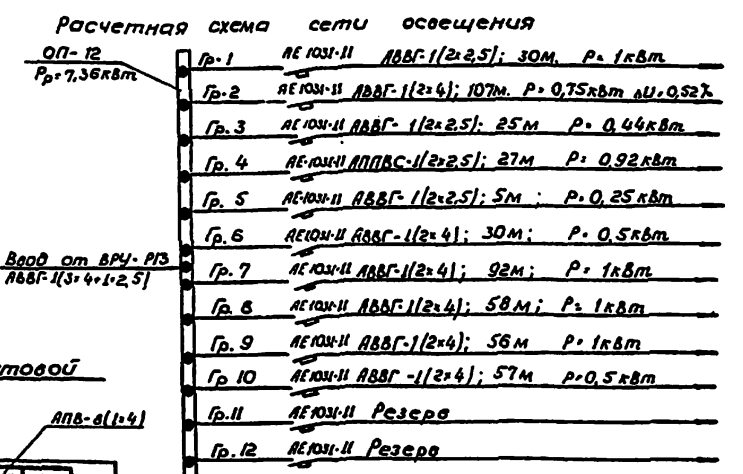 Расчетная схема сети освещения
ОП-12
Pр=7,36кВт
Гр.1 АЕ1031-11 АВВГ-1(2×2,5); 30м. P=1кВт
Гр.2 АЕ1031-11 АВВГ-1(2×4); 107м. P=0,75кВт ΔU=0,52%
Гр.3 АЕ1031-11 АВВГ-1(2×2,5); 25м P=0,44кВт
Гр.4 АЕ-1031-11 АППВС-1(2×2,5); 27м P=0,92кВт
Гр.5 АЕ-1031-11 АВВГ-1(2×2,5); 5м; P=0,25кВт
Гр.6 АЕ1031-11 АВВГ-1(2×4); 30м; P=0,5кВт
Ввод от ВРУ-РПЗ
АВВГ-1(3×4+1×2,5)
Гр.7 АЕ1031-11 АВВГ-1(2×4); 92м; P=1кВт
Гр.8 АЕ1031-11 АВВГ-1(2×4); 58м; P=1кВт
Гр.9 АЕ1031-11 АВВГ-1(2×4); 56м P=1кВт
товой
Гр 10 АЕ1031-11 АВВГ-1(2×4); 57м P=0,5кВт
АПВ-8(1×4)
Гр.11 АЕ1031-11 Резерв
Гр.12 АЕ1031-11 Резерв